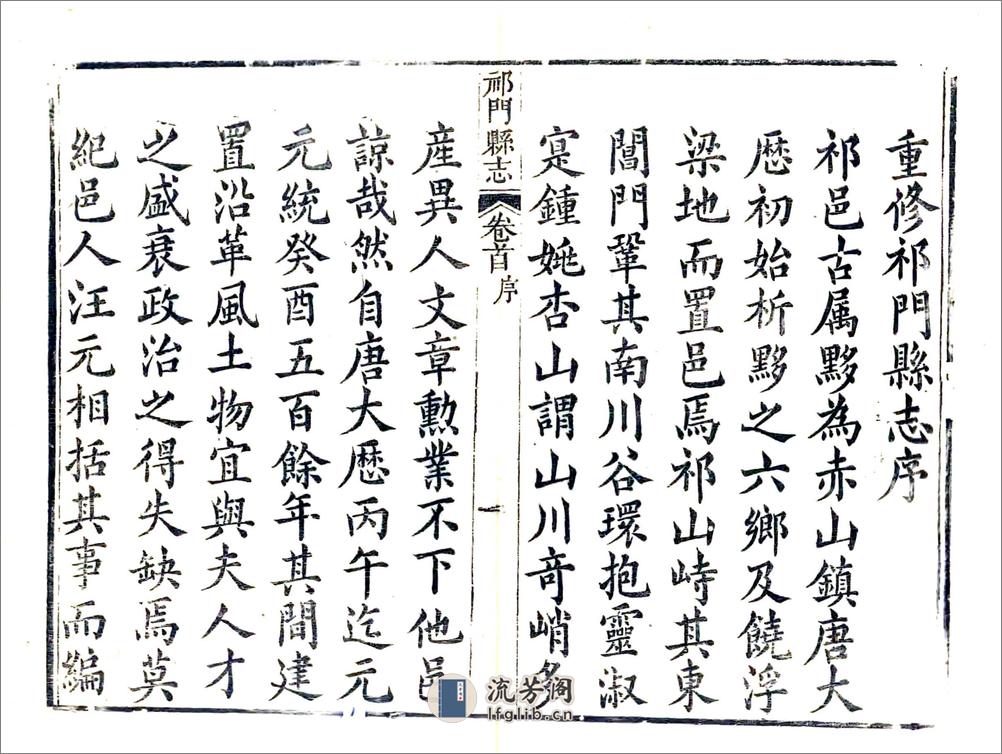 重修祁門縣志序
祁邑古属黟為赤山鎮唐大
歷初始析黟之六鄉及饒浮
梁地而置邑焉祁山峙其東
閶門鞏其南川谷環抱靈淑
寔鍾姚杏山謂山川奇峭多
祁門縣志 卷首 序 一
産異人文章勲業不下他邑
諒哉然自唐大歷丙午迄元
元統癸酉五百餘年其間建
置沿革風土物宜與夫人才
之盛衰政治之得失缺焉莫
紀邑人汪元相括其事而編
流芳阁
lfglib.cn